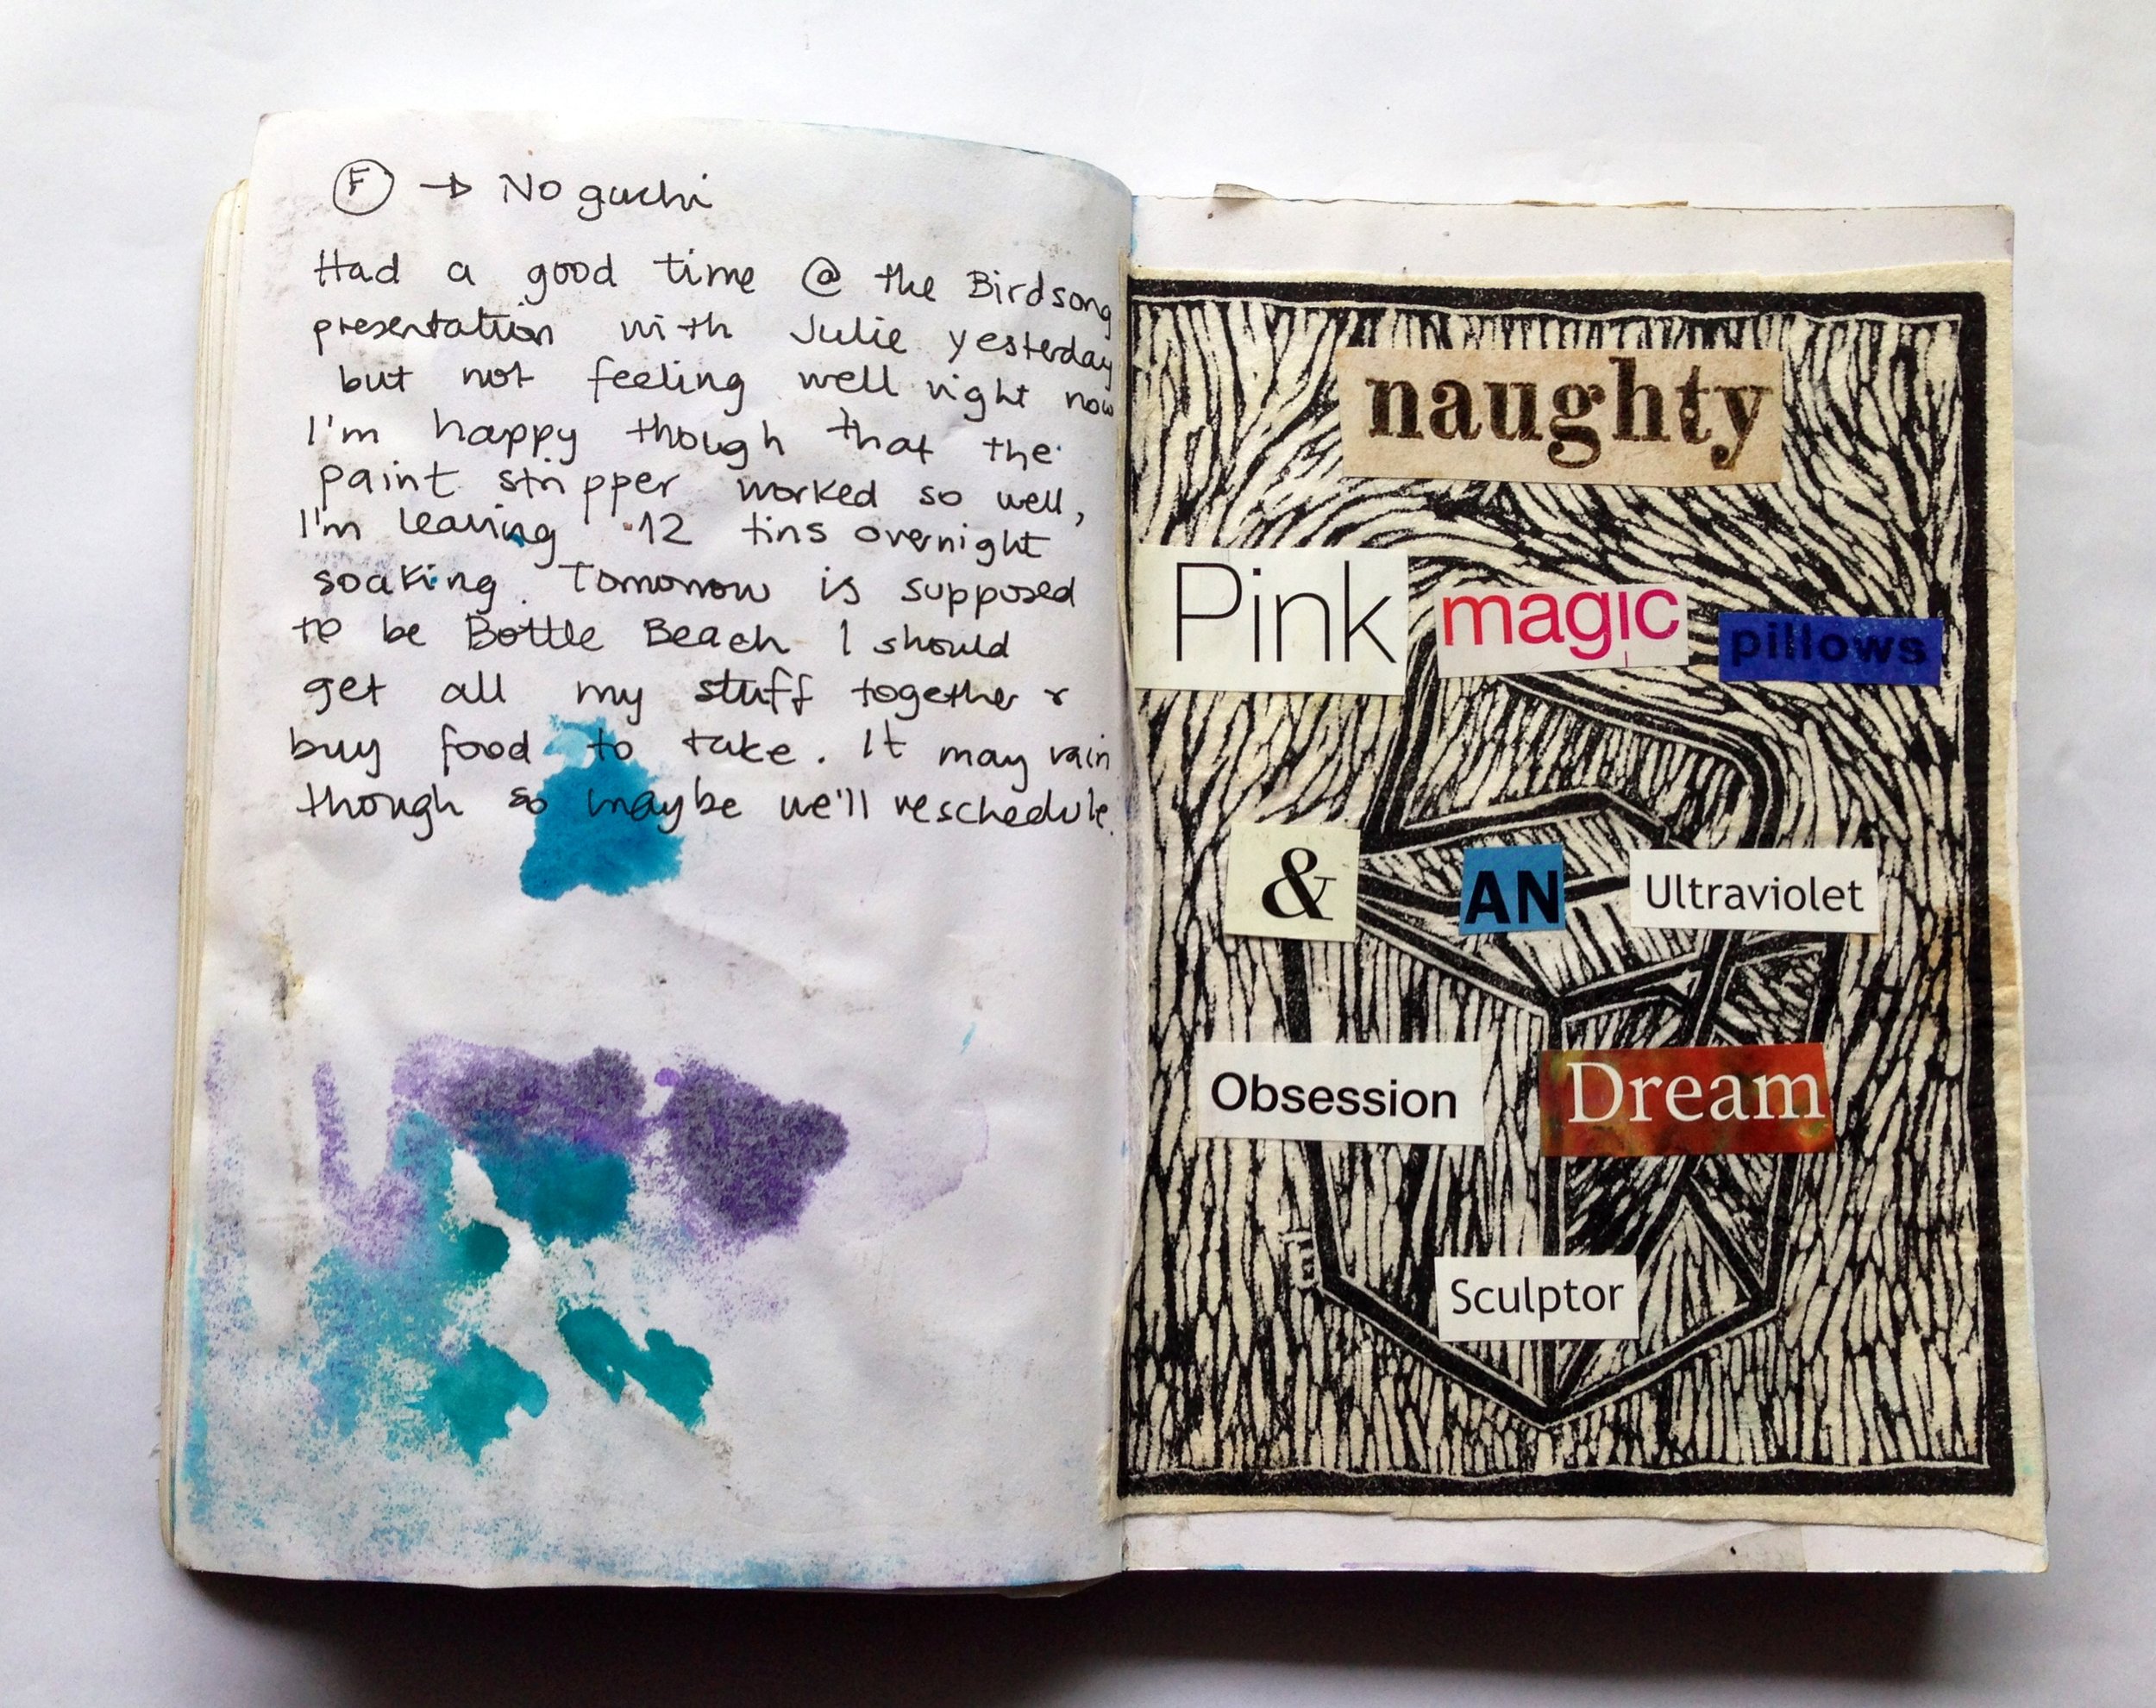 F → Noguchi
Had a good time @ the Birdsong
presentation with Julie yesterday
but not feeling well right now
I'm happy though that the
paint stripper worked so well,
I'm leaving 12 tins overnight
soaking. Tomorrow is supposed
to be Bottle Beach I should
get all my stuff together &
buy food to take. It may rain
though so maybe we'll reschedule.
naughty
Pink magic pillows
& AN Ultraviolet
Obsession Dream
Sculptor